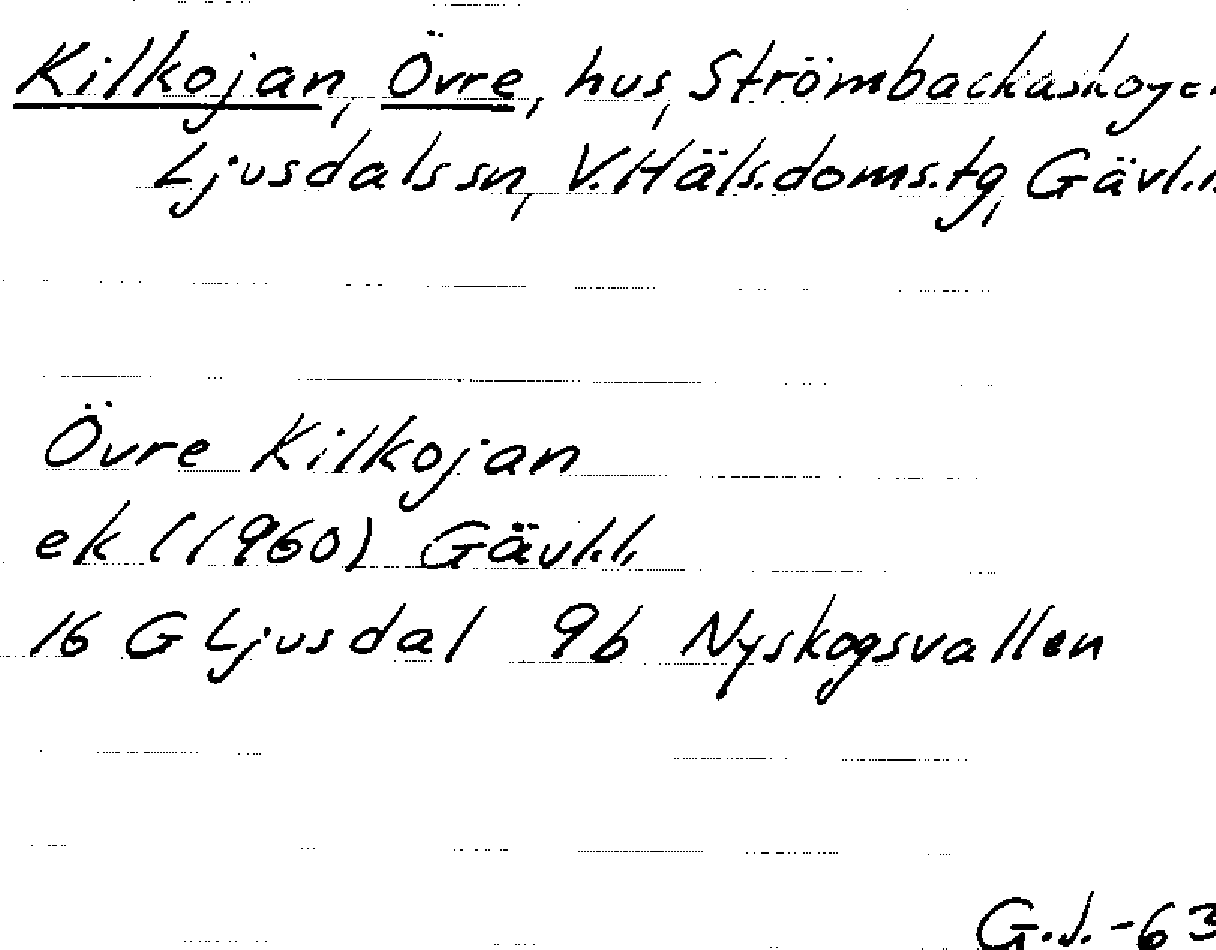 Kilkojan, Övre, hus, Strömbackaskogen
Ljusdals sn, V.Häls.doms.tg, Gävl.l.
Övre Kilkojan
ek (1960) Gävl.l.
16 G Ljusdal 9b Nyskogsvallen
G.J.-63